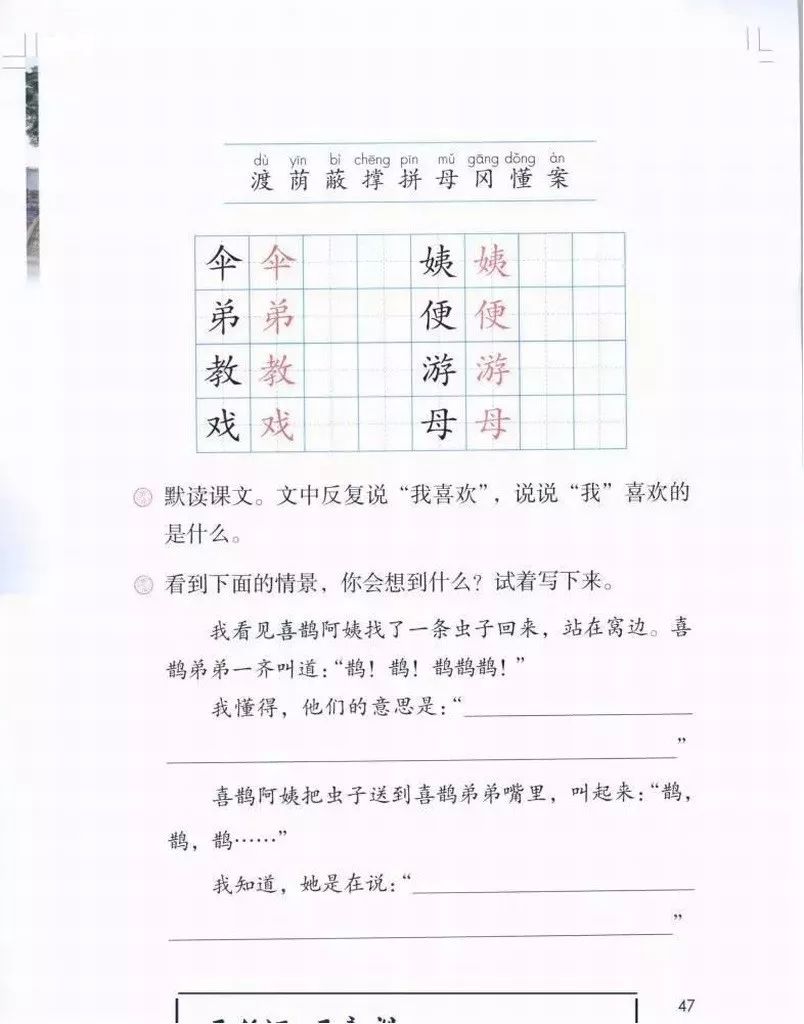 dù yīn bì chēng pīn mǔ gāng dǒng àn
渡 荫 蔽 撑 拼 母 冈 懂 案
伞 伞 姨 姨
弟 弟 便 便
教 教 游 游
戏 戏 母 母
默读课文。文中反复说“我喜欢”，说说“我”喜欢的
是什么。
看到下面的情景，你会想到什么？试着写下来。
我看见喜鹊阿姨找了一条虫子回来，站在窝边。喜
鹊弟弟一齐叫道：“鹊！鹊！鹊鹊鹊！”
我懂得，他们的意思是：“
”
喜鹊阿姨把虫子送到喜鹊弟弟嘴里，叫起来：“鹊，
鹊，鹊……”
我知道，她是在说：“
”
47